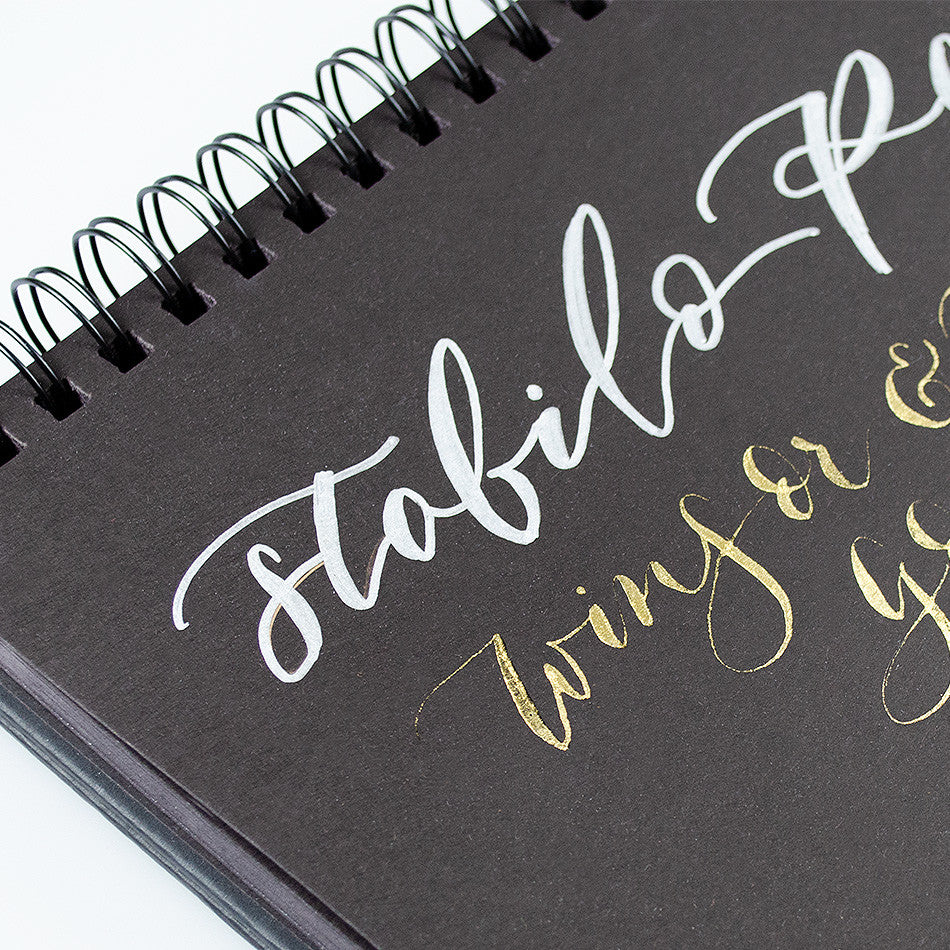 stabilo Pe
winsor &
go